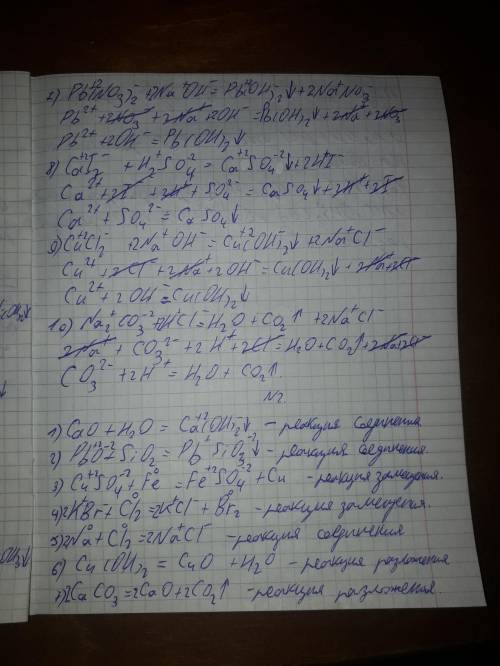 2) Pb⁺²(NO₃)₂⁻ + 2Na⁺OH⁻ = Pb⁺²(OH)₂⁻↓ + 2Na⁺NO₃⁻
Pb²⁺ + 2NO₃⁻ + 2Na⁺ + 2OH⁻ = Pb(OH)₂↓ + 2Na⁺ + 2NO₃⁻
Pb²⁺ + 2OH⁻ = Pb(OH)₂↓
8) Ca⁺²I₂⁻ + H₂⁺SO₄⁻² = Ca⁺²SO₄⁻²↓ + 2H⁺I⁻
Ca²⁺ + 2I⁻ + 2H⁺ + SO₄²⁻ = CaSO₄↓ + 2H⁺ + 2I⁻
Ca²⁺ + SO₄²⁻ = CaSO₄↓
9) Cu⁺²Cl₂⁻ + 2Na⁺OH⁻ = Cu⁺²(OH)₂⁻↓ + 2Na⁺Cl⁻
Cu²⁺ + 2Cl⁻ + 2Na⁺ + 2OH⁻ = Cu(OH)₂↓ + 2Na⁺ + 2Cl⁻
Cu²⁺ + 2OH⁻ = Cu(OH)₂↓
10) Na₂⁺CO₃⁻² + 2H⁺Cl⁻ = H₂O + CO₂↑ + 2Na⁺Cl⁻
2Na⁺ + CO₃²⁻ + 2H⁺ + 2Cl⁻ = H₂O + CO₂↑ + 2Na⁺ + 2Cl⁻
CO₃²⁻ + 2H⁺ = H₂O + CO₂↑.
N2.
1) CaO + H₂O = Ca⁺²(OH)₂⁻↓ - реакция соединения
2) Pb⁺²O⁻² + SiO₂ = Pb⁺SiO₃⁻²↓ - реакция соединения.
3) Cu⁺²SO₄⁻² + Fe⁰ = Fe⁺²SO₄⁻² + Cu - реакция замещения.
4) 2K⁺Br⁻ + Cl₂⁰ = 2K⁺Cl⁻ + Br₂⁰ - реакция замещения.
5) 2Na⁰ + Cl₂⁰ = 2Na⁺Cl⁻ - реакция соединения
6) Cu(OH)₂ = CuO + H₂O - реакция разложения
7) 2CaCO₃ = 2CaO + 2CO₂↑ - реакция разложения.